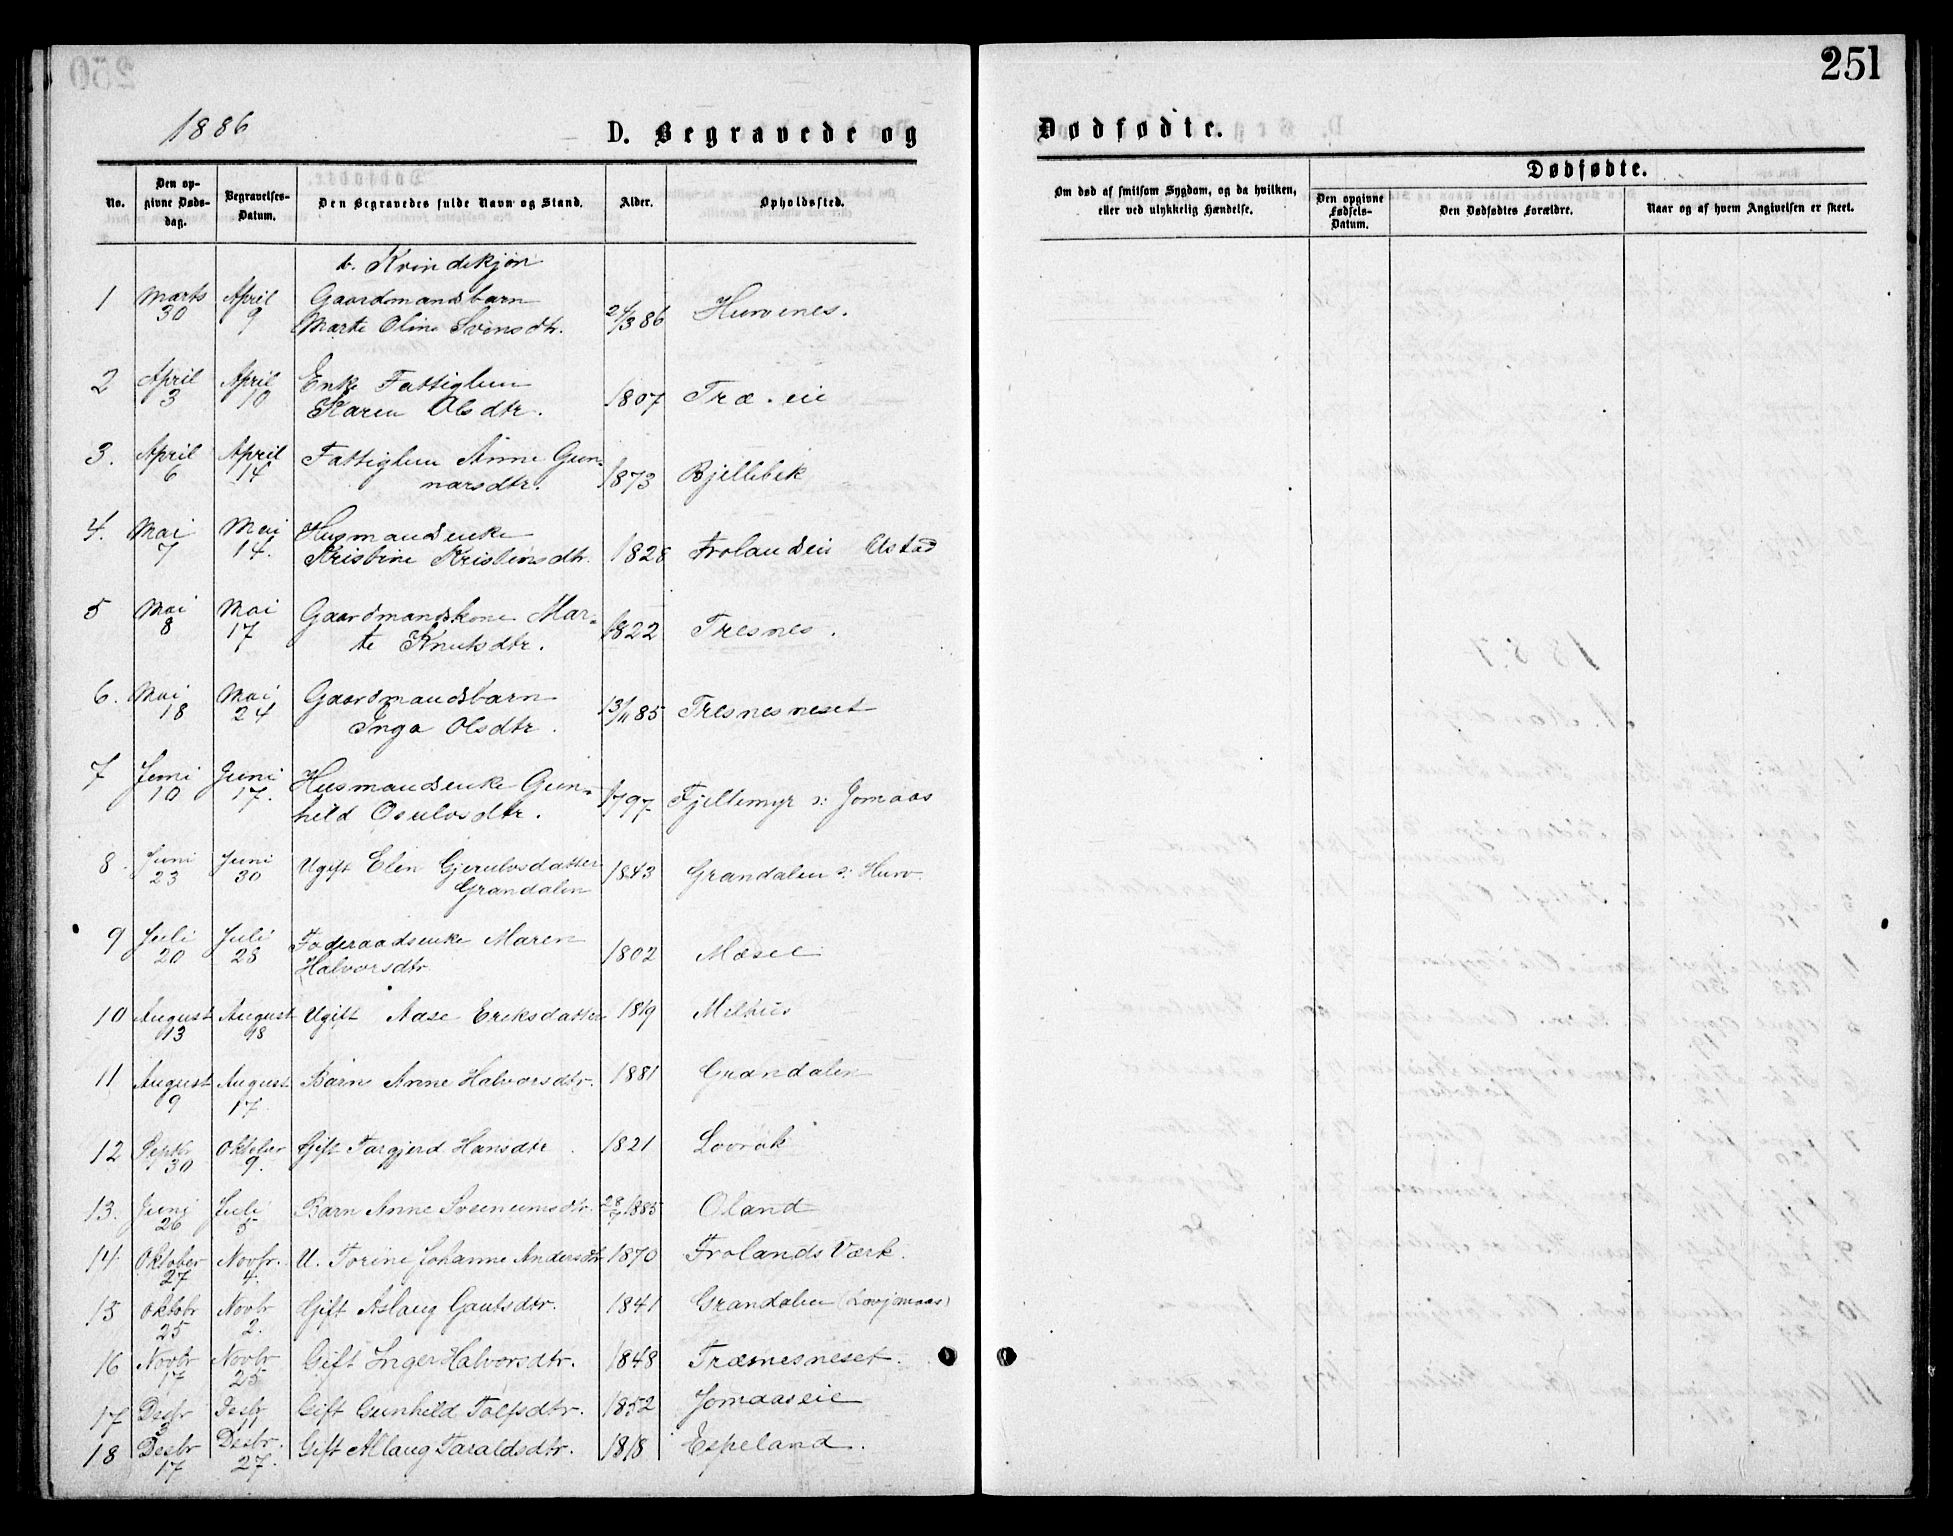 251
1886
D. Begravede og
Dødfødte.
No.
Den op-
givne Døds-
dag.
Begravelses-
Datum.
Den Begravedes fulde Navn og Stand.
Alder.
Opholdssted.
Om død af smitsom Sygdom, og da hvilken,
eller ved ulykkelig Hændelse.
Dødfødte.
Den opgivne
Fødsels-
Datum.
Den Dødfødtes Forældre.
Naar og af hvem Angivelsen er skeet.
b. Kvindekjøn
1 Marts 30 April 9 Gaardmandsbarn
Marte Oline Svensdtr. 24/3 86 Hurvenes.
2 April 3 April 10 Enke Fattiglem
Karen Olsdtr. 1807 Træ. eie
3. April 6 April 14 Fattiglem Anne Gun-
narsdtr. 1873 Bjellebek
4. Mai 7 Mai 14. Husmandsenke
Kristine Kristensdtr. 1828 Frolandseie Ustad
5 Mai 8 Mai 17 Gaardmandskone Mar-
te Knutsdtr. 1822 Tresnes.
6. Mai 18 Mai 24 Gaardmandsbarn
Inga Olsdtr. 13/11 85 Tresnesneset
7 Juni 10 Juni 17. Husmandsenke Gun-
hild Osulvsdtr. 1797 Fjellemyr v: Jomaas
8. Juni 23 Juni 30 Ugift Elen Gjerulvsdatter
Grandalen 1843 Grandalen v: Hurv.
9 Juli 20 Juli 28 Foderaadsenke Maren
Halvorsdtr 1802 Mæsel
10 August 13 August 18 Ugift Aase Ereksdatter 1819 Melhus
11 August 9 August 17. Barn Anne Halvorsdtr. 1881 Grandalen
12 Septbr 30 Oktober 9. Gift Targjerd Hansdtr 1821 Lovrak
13. Juni 26 Juli 5 Barn Anne Sveinumsdtr. 28/7 1885 Oland
14. Oktober 27 Novbr. 4. U. Torine Johanne Andersdtr 1870 Frolands Værk.
15 Oktobr 25 Novbr 2. Gift Aslaug Gautsdtr. 1841 Grandalen (Lovjomaas)
16 Novbr 17 Novbr 25 Gift Inger Halvorsdtr. 1848 Træsnesneset.
17 Desbr 3 Desbr 11 Gift Gunhild Tolfsdtr. 1852 Jomaaseie
18 Desbr 17 Desbr. 27. Gift Aslaug Taraldsdtr. 1818 Espeland.